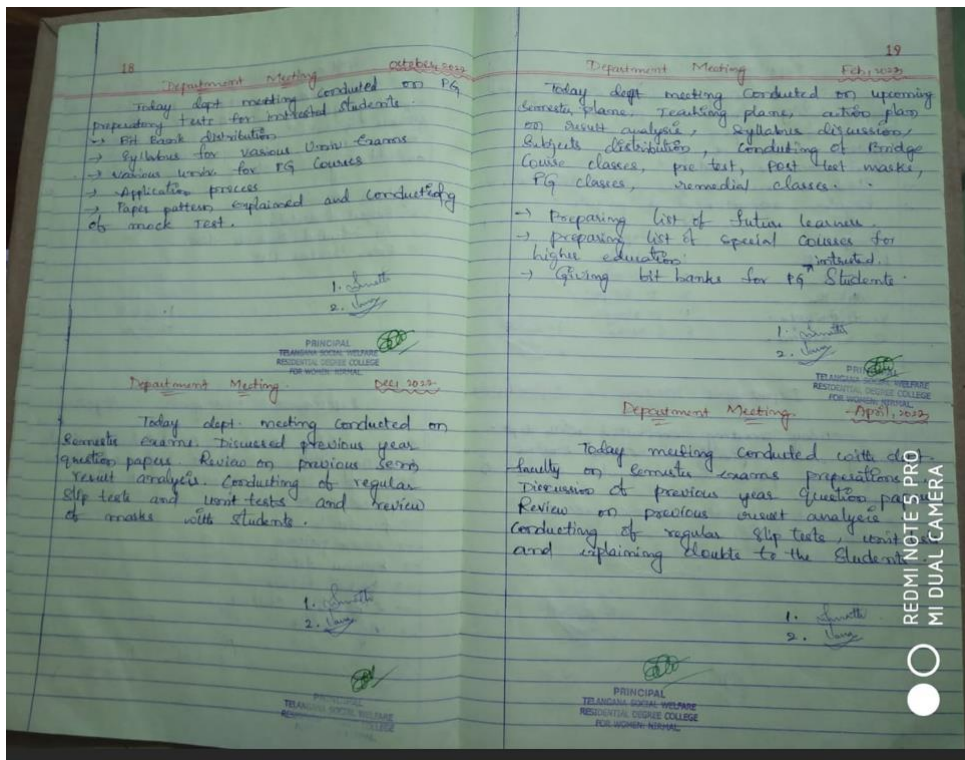 18
Department Meeting
October, 2022
Today dept meeting conducted on PG
preparatory tests for intrusted students.
→ Bit Bank distribution
→ Syllabus for various Univ. Exams
→ various univ. for PG Courses
→ Application process
→ Paper pattern explained and conducting
of mock Test.
1.
2.
PRINCIPAL
TELANGANA SOCIAL WELFARE
RESIDENTIAL DEGREE COLLEGE
FOR WOMEN: NIRMAL
Department Meeting. Dec, 2022
Today dept. meeting conducted on
Semester Exams. Discussed previous year
question papers. Review on previous sem
result analysis. Conducting of regular
slip tests and unit tests and review
of marks with students.
1.
2.
PRINCIPAL
TELANGANA SOCIAL WELFARE
RESIDENTIAL DEGREE COLLEGE
19
Department Meeting
Feb, 2022
Today dept meeting conducted on upcoming
Semester plans, Teaching plans, action plan
on result analysis, Syllabus discussion,
Subjects distribution, Conducting of Bridge
Course classes, pre test, post test marks,
PG classes, remedial classes.
→ Preparing list of future learners.
→ preparing list of special courses for
higher education
intrusted.
→ Giving bit banks for PG Students.
1.
2.
TELANGANA SOCIAL WELFARE
RESIDENTIAL DEGREE COLLEGE
FOR WOMEN: NIRMAL
Department Meeting. April, 2022
Today meeting conducted with
faculty on semester exams preparations
Discussion of previous year question
Review on previous result analysis
Conducting of regular slip tests, unit
and explaining doubts to the Students
1.
2.
PRINCIPAL
TELANGANA SOCIAL WELFARE
RESIDENTIAL DEGREE COLLEGE
FOR WOMEN: NIRMAL
REDMI NOTE 5 PRO
MI DUAL CAMERA